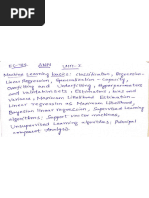 CS-35 ANN UNIT-I
Machine Learning basics: Classification, Regression-
Linear Regression, Generalization - Capacity,
Overfitting and Underfitting, Hyperparameters
and Validation sets, Estimators, bias and
Variance, Maximum Likelihood Estimation -
Linear regression as Maximum Likelihood,
Bayesian linear Regression, Supervised Learning
algorithms: Support vector machines,
Unsupervised Learning algorithms: Principal
component Analysis.